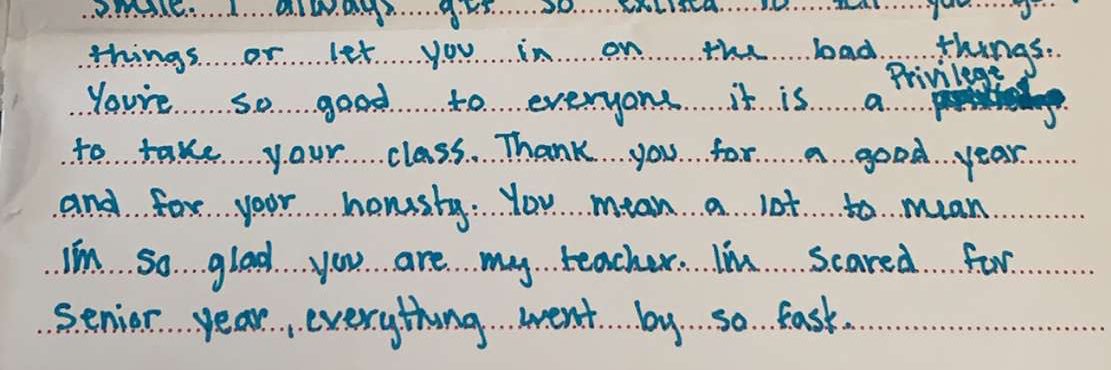 smile. I always get so excited to tell you go
things or let you in on the bad things.
You're so good to everyone it is a Privilege
to take your class. Thank you for a good year
and for your honesty. You mean a lot to mean
I'm so glad you are my teacher. I'm scared for
senior year, everything went by so fast.